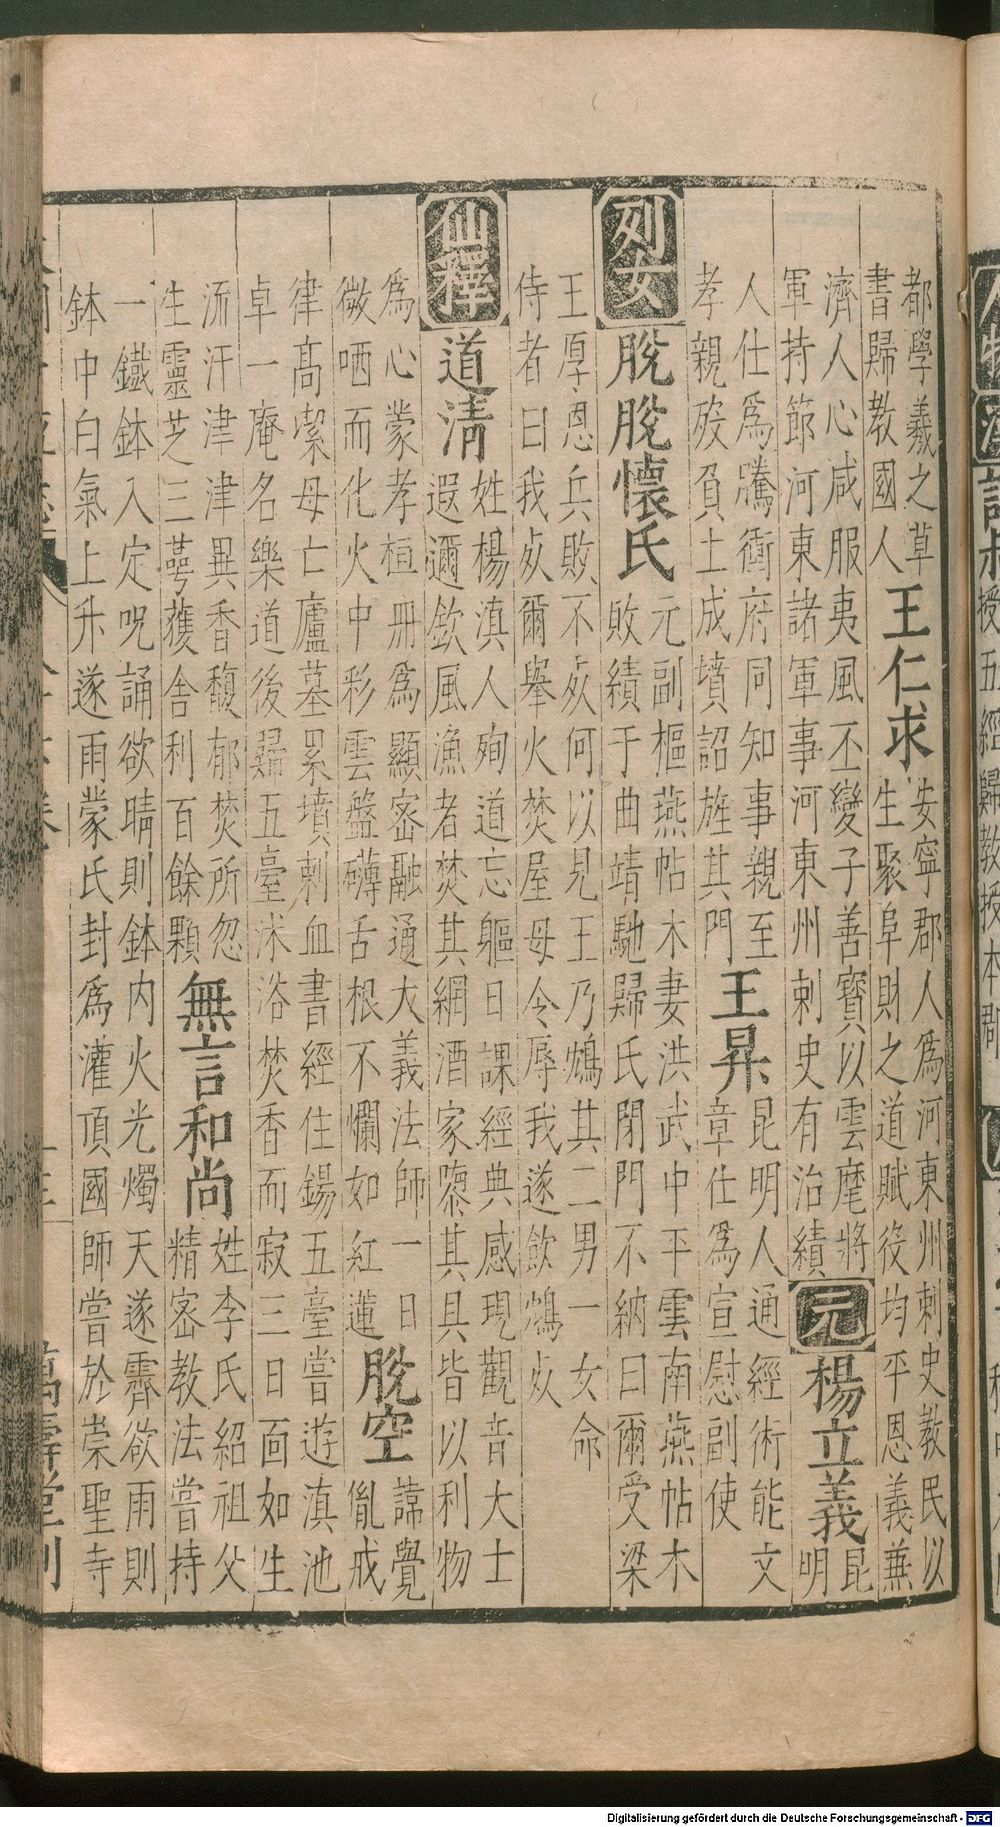 都學羲之草
書歸教國人
王仁求
安寧郡人爲河東州刺史教民以
生聚阜財之道賦役均平恩義兼
濟人心咸服夷風丕變子善寶以雲麾將
軍持節河東諸軍事河東州刺史有治績
元
楊立義
昆
明
人仕爲騰衝府同知事親至
孝親歿負土成墳詔旌其門
王昇
昆明人通經術能文
章仕爲宣慰副使
列女
脫脫懷氏
元副樞燕帖木妻洪武中平雲南燕帖木
敗績于曲靖馳歸氏閉門不納曰爾受梁
王厚恩兵敗不㱠何以見王乃鴆其二男一女命
侍者曰我㱠爾舉火焚屋毋令辱我遂飲鴆㱠
仙釋
道清
姓楊滇人殉道忘軀日課經典感現觀音大士
遐邇欽風漁者焚其網酒家隳其具皆以利物
爲心蒙孝桓冊爲顯密融通大義法師一日
微哂而化火中彩雲盤礴舌根不爛如紅蓮
脫空
諱覺
胤戒
律高潔母亡廬墓累墳刺血書經住錫五臺嘗遊滇池
卓一庵名樂道後歸五臺沐浴焚香而寂三日面如生
流汗津津異香馥郁焚所忽
生靈芝三蕚獲舍利百餘顆
無言和尚
姓李氏紹祖父
精密教法嘗持
一鐵鉢入定呪誦欲晴則鉢内火光燭天遂霽欲雨則
鉢中白氣上升遂雨蒙氏封爲灌頂國師嘗於崇聖寺
萬壽堂刊
授五經歸教授本郡
Digitalisierung gefördert durch die Deutsche Forschungsgemeinschaft - DFG